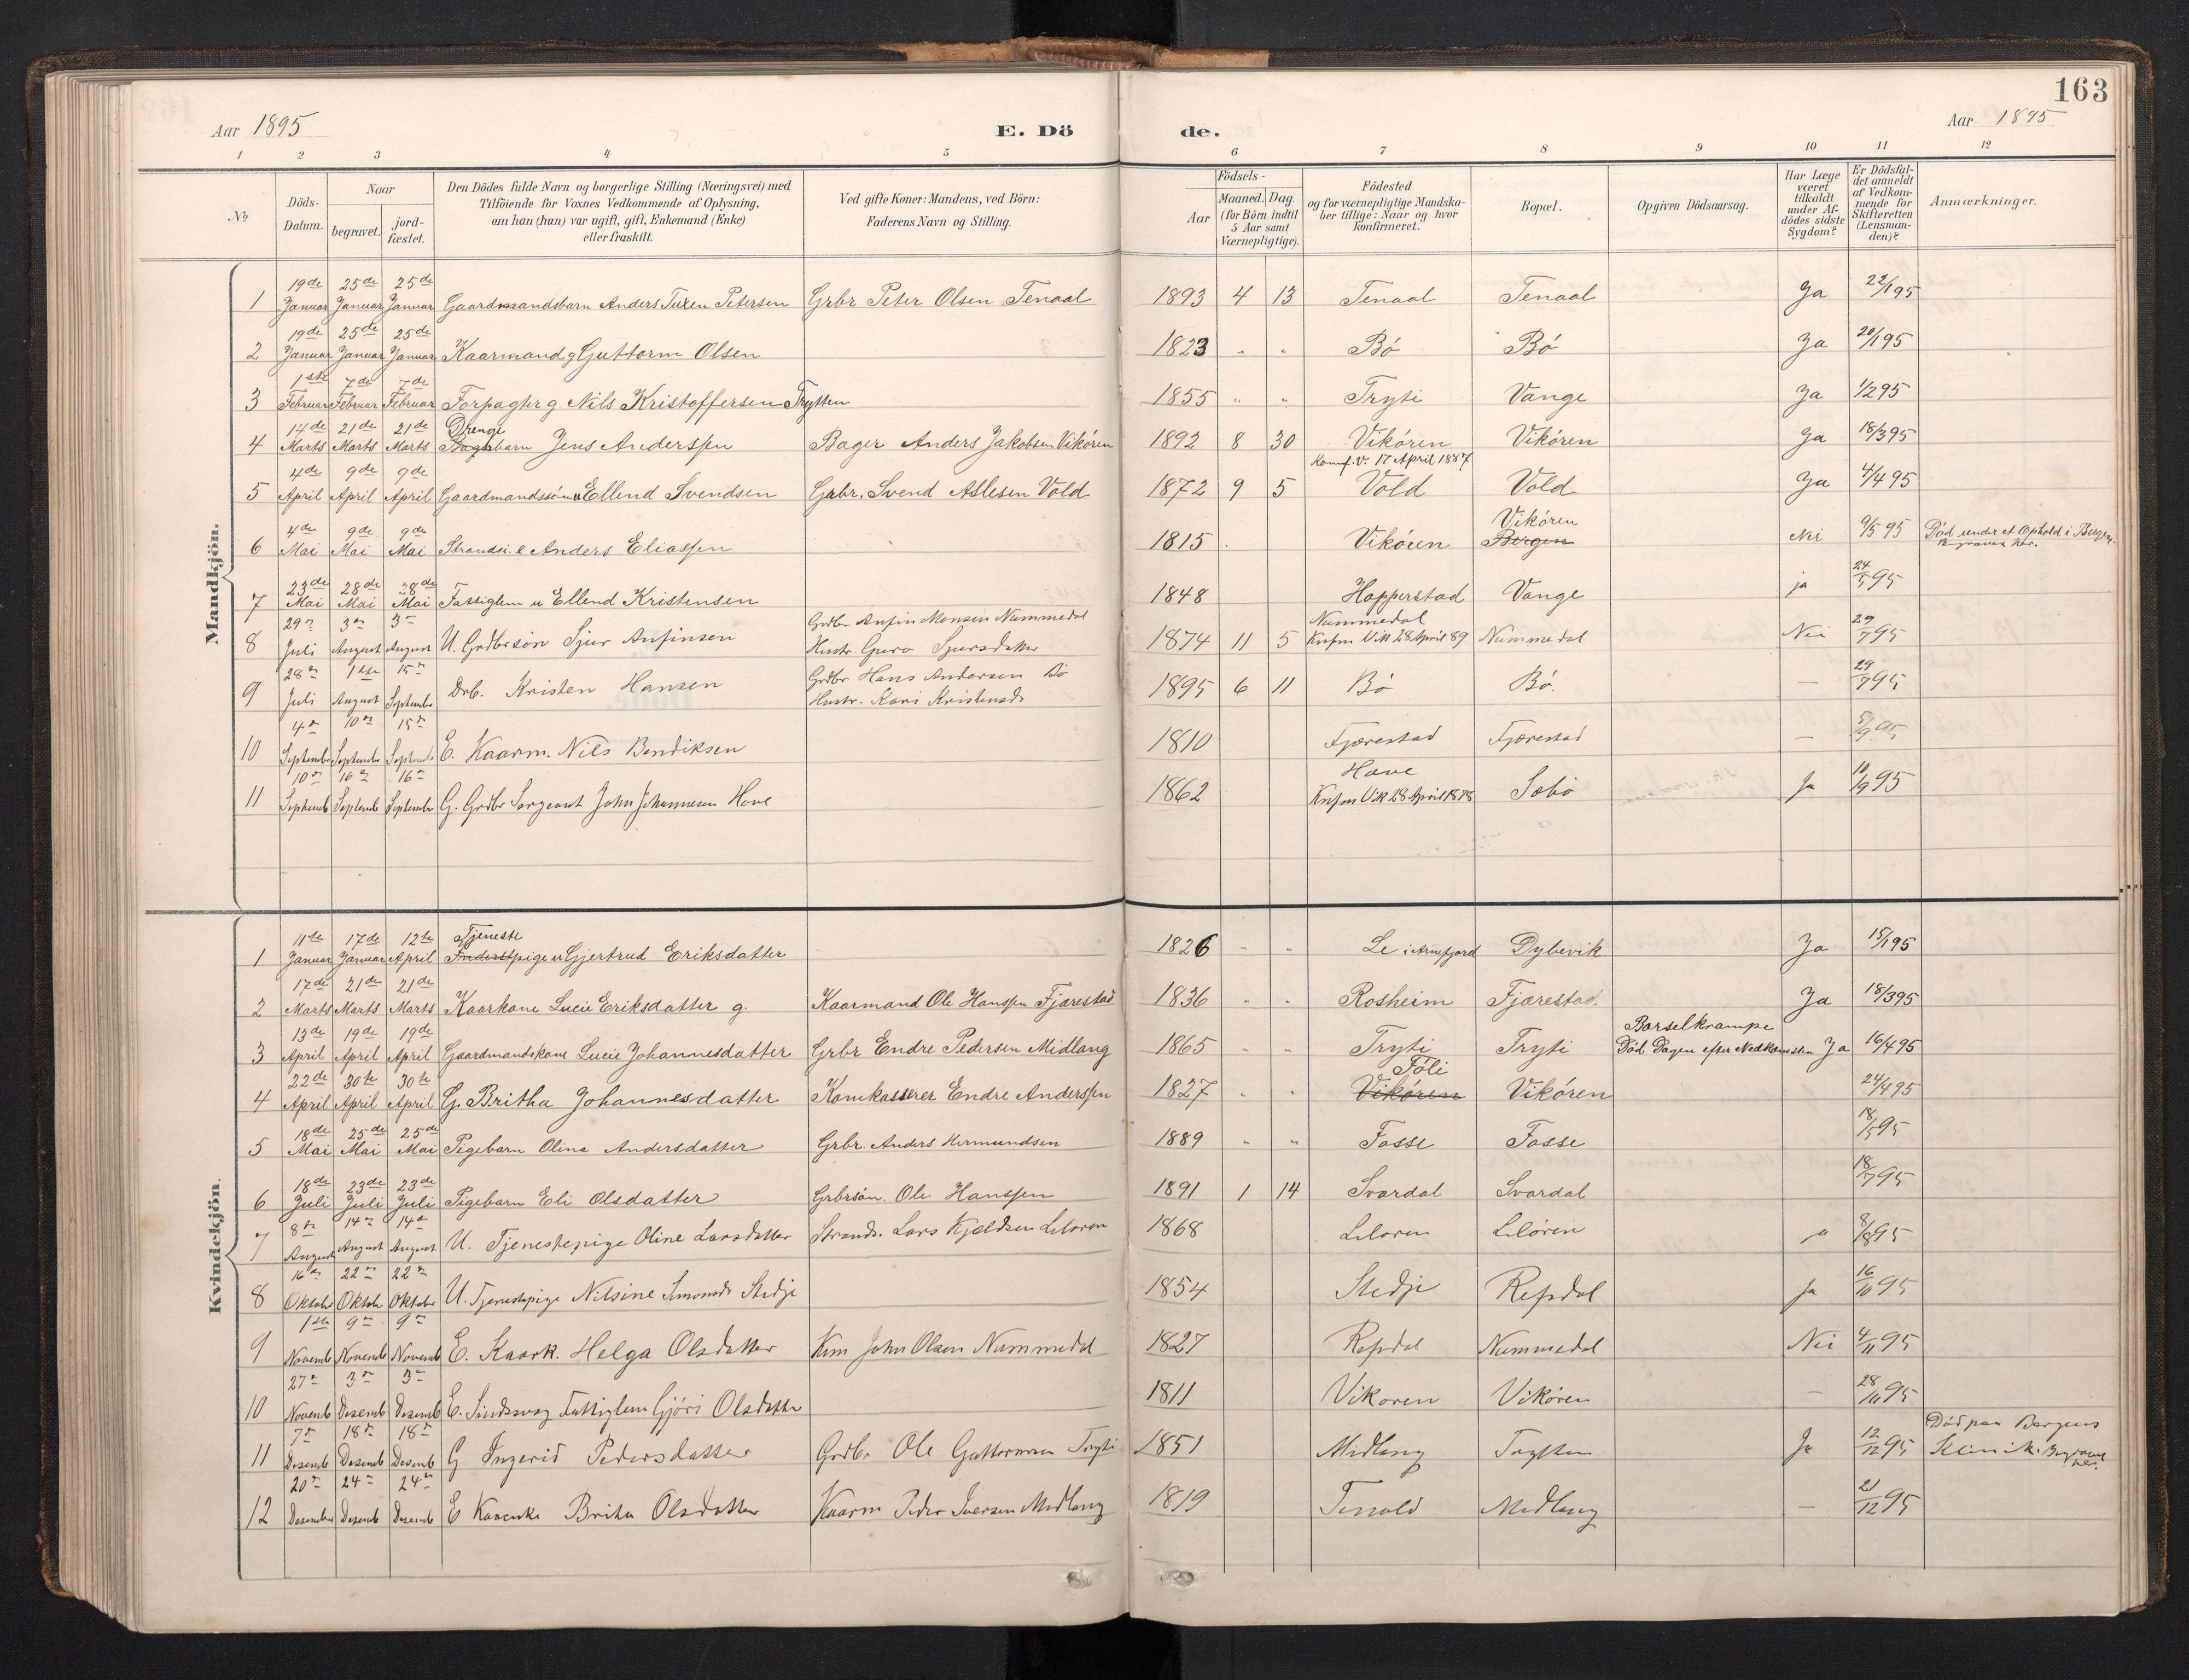 163
Aar 1895
E. Dö
de.
Aar 1895
1 2 3 4 5 6 7 8 9 10 11 12
No
Döds-Datum.
Naar
begravet.
jord-fæstet.
Den Dödes fulde Navn og borgerlige Stilling (Næringsvei) med
Tilföiende for Voxnes Vedkommende af Oplysning,
om han (hun) var ugift, gift, Enkemand (Enke)
eller fraskilt.
Ved gifte Koner: Mandens, ved Börn:
Faderens Navn og Stilling.
Födsels-
Aar
Maaned. Dag
(for Börn indtil
5 Aar samt
Værnepligtige).
Födested
og for værnepligtige Mandskaber
tillige: Naar og hvor
konfirmeret.
Bopæl.
Opgiven Dödsaarsag.
Har Læge
været
tilkaldt
under Af-
dödes sidste
Sygdom?
Er Dödsfal-
det anmeldt
af Vedkom-
mende for
Skifteretten
(Lensman-
den)?
Anmærkninger.
Mandkjön.
19de 25de 25de
1 Januar Januar Januar Gaardmandsbarn Anders Turen Petersen Grbr Peter Olsen Tenaal 1893 4 13 Tenaal Tenaal Ja 22/1 95
19de 25de 25de
2 Januar Januar Januar Kaarmand g Guttorm Olsen 1823 " " Bö Bö Ja 20/1 95
1ste 7de 7de
3 Februar Februar Februar Forpagter g Nils Kristoffersen Trytten 1855 " " Tryti Vange Ja 1/2 95
14de 21de 21de Drenge
4 Marts Marts Marts barn Jens Anderssen Bager Anders Jakobsen Vikören 1892 8 30 Vikören Vikören Ja 18/3 95
4de 9de 9de Konf. V. 17 April 1887
5 April April April Gaardmandssön u Ellend Svendsen Grbr. Svend Atlesen Vold 1872 9 5 Vold Vold Ja 4/4 95
4de 9de 9de Vikören
6 Mai Mai Mai Strands. e Anders Eliassen 1815 Vikören Bergen Nei 9/5 95 Död under et Ophold i Bergen.
Begraves her.
23de 28de 28de
7 Mai Mai Mai Fattiglem u Ellend Kristensen 1848 Hopperstad Vange ja 24/5 95
29n 3n 3n Grdbr Anfin Monsen Nummedal Nummedal
8 Juli August August U. Grdbrsön Sjur Anfinsen Hustr. Guro Sjursdatter 1874 11 5 Knfm Vik 28 April 89 Nummedal Nei 29/7 95
28n 1ste 15n Grdbr Hans Andersen Bö
9 Juli August September Drb. Kristen Hansen Hustr. Kari Kristensd. 1895 6 11 Bö Bö. — 29/7 95
4n 10n 15n
10 September September September E. Kaarm. Nils Bendiksen 1810 Fjærestad Fjærestad — 5/9 95
10n 16n 16n Hove
11 Septemb Septemb September G. Grdbr Sergeant John Johannesen Hove 1862 Knfm Vik 28 April 1878 Sæbö Ja 10/9 95
Kvindekjön.
11te 17de 12te Tjeneste
1 Januar Januar April pige u Gjertrud Eriksdatter 1826 " " Le i Arnefjord Dybevik Ja 15/1 95
17de 21de 21de
2 Marts Marts Marts Kaarkone Lucie Eriksdatter g. Kaarmand Ole Hanssen Fjærestad 1836 " " Rosheim Fjærestad. Ja 18/3 95
13de 19de 19de Barselkrampe
3 April April April Gaardmandskone Lucie Johannesdatter Grbr Endre Pedersen Midlang 1865 " " Tryti Tryti Död Dagen efter Nedkomsten Ja 16/4 95
22de 30te 30te Föli
4 April April April G. Britha Johannesdatter Komkasserer Endre Anderssen 1827 " " Vikören Vikören 24/4 95
18de 25de 25de
5 Mai Mai Mai Pigebarn Olina Andersdatter Grbr. Anders Hermundsen 1889 " " Fosse Fosse 18/5 95
18de 23de 23de
6 Juli Juli Juli Pigebarn Eli Olsdatter Grbrsön. Ole Hanssen 1891 1 14 Svardal Svardal 18/7 95
8n 14n 14n
7 August August August U. Tjenestepige Oline Larsdatter Strands. Lars Kjeldsen 1868 8/8 95
16n 22n 22n
8 Oktober Oktober Oktober U. Tjenestepige Nilsine Simonsd. Stedje 1854 Stedje Refsdal Ja 16/10 95
1ste 9n 9n
9 Novemb Novemb Novemb E. Kaark. Helga Olsdatter Km John Olsen Nummedal 1827 Refsdal Nummedal Nei 4/11 95
27n 3n 3n
10 Novemb Desemb Desemb E. Sindssvag Fattiglem Gjöri Olsdatter 1811 Vikoren Vikören — 28/11 95
7n 18n 18n Död paa Bergens
11 Desemb Desemb Desemb G Ingerid Pedersdatter Grdbr Ole Guttormsen Tryti 1851 Midlang Trytten Ja 12/12 95 Klinik. Begravet
her.
20n 24n 24n
12 Desember Desemb Desemb E Kaarenke Brita Olsdatter Kaarm Peder Iversen Midlang 1819 Tenold Midlang — 21/12 95